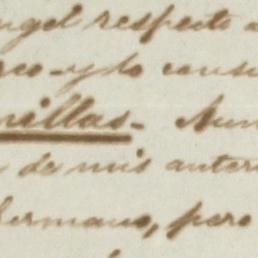 ngel respecto a
rco - y lo consi
nillas - Nun
de mis anteri
hermano, pero